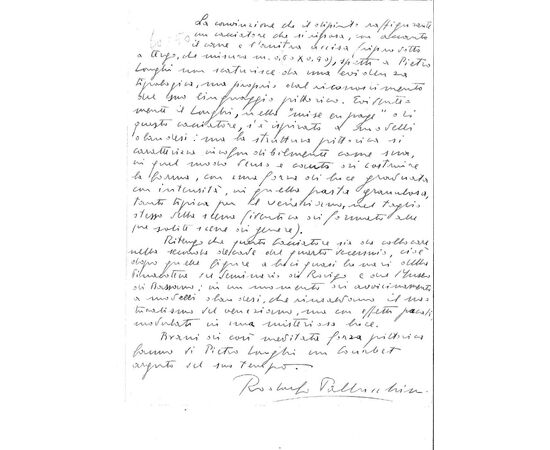 La convinzione che il dipinto raffigurante
un cacciatore che si riposa, con accanto
il cane e l'anitra uccisa (riprodotto
a tergo, che misura m. 0,60 x 0,9), spetti a Pietro
Longhi non scaturisce da una evidenza
tipologica, ma proprio dal riconoscimento
del suo linguaggio pittorico. Evidente-
mente il Longhi, nella "mise en page" di
questo cacciatore, s'è ispirato a modelli
olandesi: ma la struttura pittorica si
caratterizza inconfondibilmente come sua,
in quel modo denso e di costruire
la forma, con una forza di luce graduata
con intensità, in quella pasta granulosa,
tanto tipica per il veneziano, nel taglio
stesso della scena (identica di formato alle
sue solite scene di genere).
Ritengo che questo Cacciatore sia da collocare
nella seconda decade del quarto decennio, cioè
dopo quelle figure a luci quasi lunari della
Pinacoteca del Seminario di Rovigo e del Museo
di Bassano: in un momento di avvicinamento
a modelli olandesi, che rinsaldano il na-
turalismo del veneziano, ma con effetti
modulati in una misteriosa luce.
Brani di così meditata forza pittorica
fanno di Pietro Longhi un Courbet
arguto del suo tempo.
Rodolfo Pallucchini